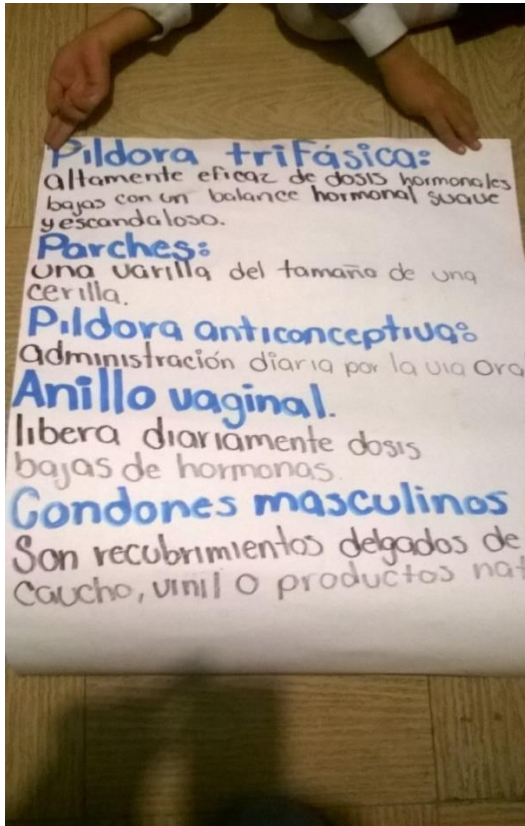 Píldora trifásica:
altamente eficaz de dosis hormonales
bajas con un balance hormonal suave
y escandaloso.
Parches:
una varilla del tamaño de una
cerilla.
Píldora anticonceptiva:
administración diaria por la via ora
Anillo vaginal.
libera diariamente dosis
bajas de hormonas.
Condones masculinos
Son recubrimientos delgados de
caucho, vinil o productos nat